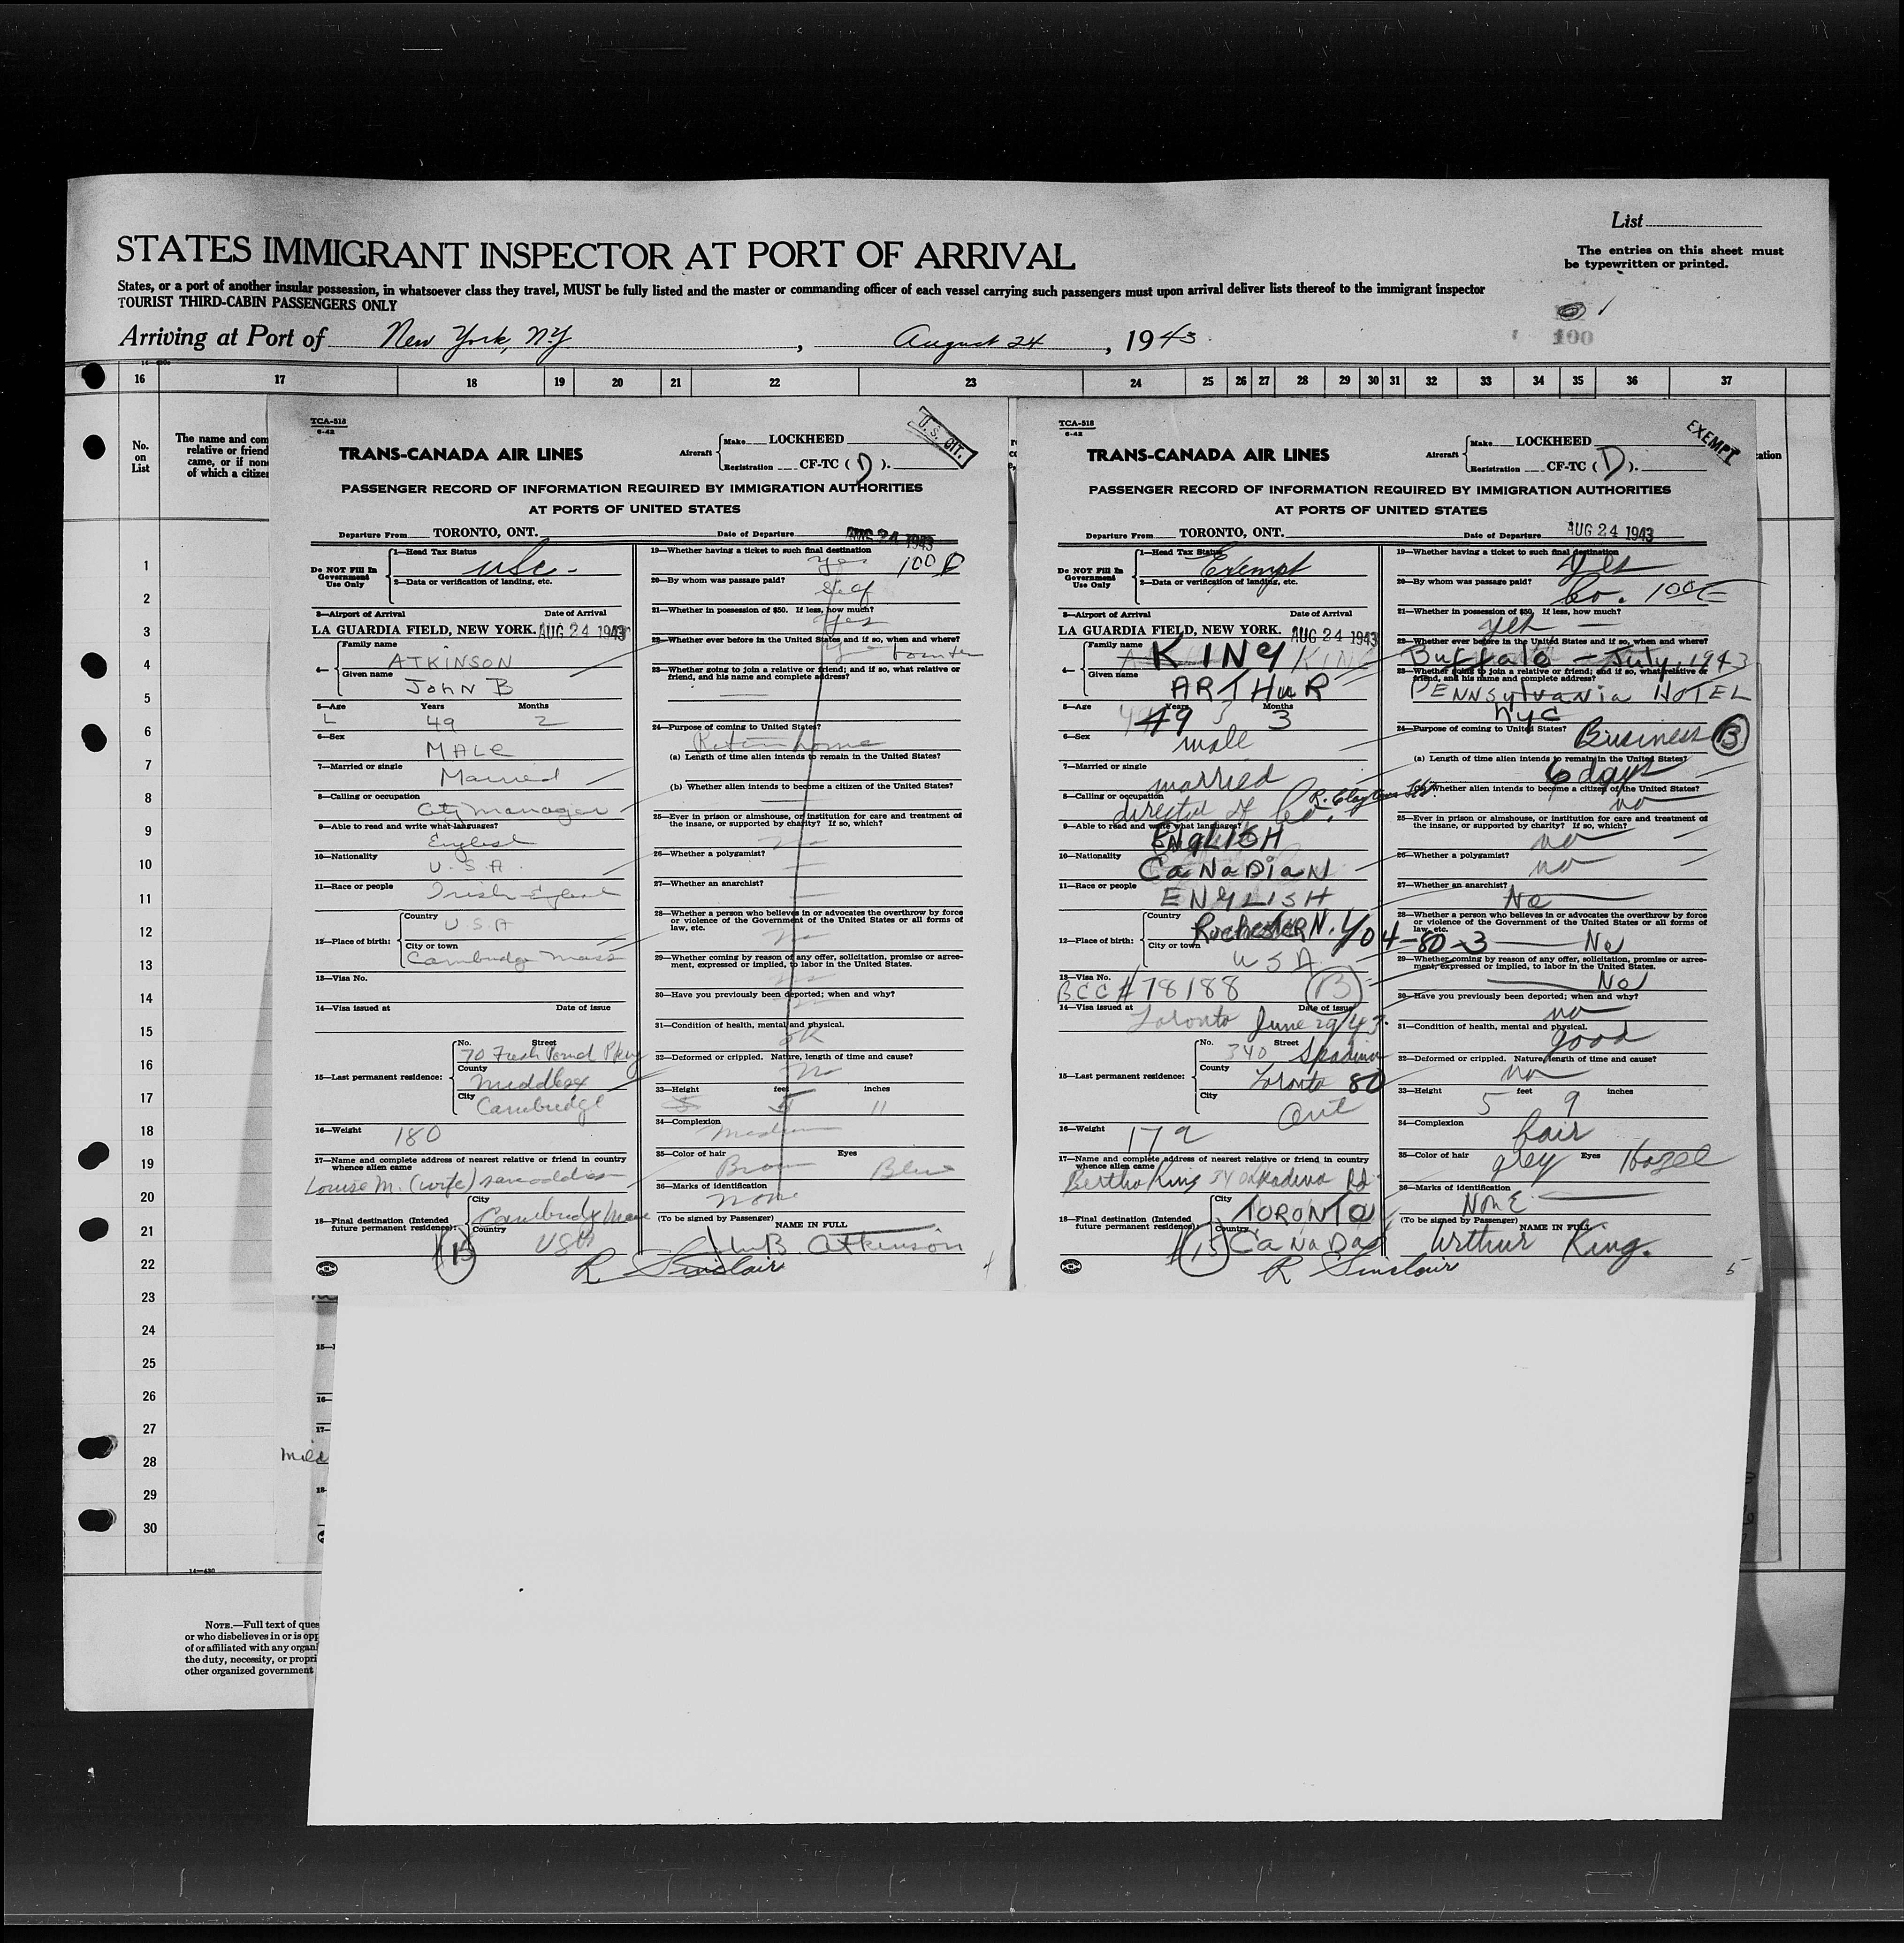 List
The entries on this sheet must
be typewritten or printed.
STATES IMMIGRANT INSPECTOR AT PORT OF ARRIVAL
States, or a port of another insular possession, in whatsoever class they travel, MUST be fully listed and the master or commanding officer of each vessel carrying such passengers must upon arrival deliver lists thereof to the immigrant inspector
TOURIST THIRD-CABIN PASSENGERS ONLY
Arriving at Port of New York, N.Y., August 24, 1943
100
16 17 18 19 20 21 22 23 24 25 26 27 28 29 30 31 32 33 34 35 36 37
No. on List
The name and com
relative or friend
came, or if none
of which a citizen
1
2
3
4
5
6
7
8
9
10
11
12
13
14
15
16
17
18
19
20
21
22
23
24
25
26
27
28
29
30
TCA-518
6-42
U.S. CIT.
TRANS-CANADA AIR LINES
Aircraft Make LOCKHEED
Registration CF-TC (D).
PASSENGER RECORD OF INFORMATION REQUIRED BY IMMIGRATION AUTHORITIES
AT PORTS OF UNITED STATES
Departure From TORONTO, ONT. Date of Departure AUG 24 1943
Do NOT Fill In Government Use Only
1—Head Tax Status USC
2—Data or verification of landing, etc.
3—Airport of Arrival Date of Arrival
LA GUARDIA FIELD, NEW YORK. AUG 24 1943
4— Family name ATKINSON
Given name JOHN B
5—Age Years 49 Months 2
6—Sex MALE
7—Married or single Married
8—Calling or occupation City Manager
9—Able to read and write what languages? English
10—Nationality U.S.A.
11—Race or people Irish-English
12—Place of birth: Country U.S.A
City or town Cambridge Mass
13—Visa No.
14—Visa issued at Date of issue
15—Last permanent residence: No. Street 70 Fresh Pond Pkwy
County Middlesex
City Cambridge
16—Weight 180
17—Name and complete address of nearest relative or friend in country
whence alien came
Louise M. (wife) same address
18—Final destination (Intended
future permanent residence): City Cambridge Mass
Country USA
15
19—Whether having a ticket to such final destination
yes 100
20—By whom was passage paid?
self
21—Whether in possession of $50. If less, how much?
yes
22—Whether ever before in the United States and if so, when and where?
23—Whether going to join a relative or friend; and if so, what relative or
friend, and his name and complete address?
24—Purpose of coming to United States?
Return home
(a) Length of time alien intends to remain in the United States?
(b) Whether alien intends to become a citizen of the United States?
25—Ever in prison or almshouse, or institution for care and treatment of
the insane, or supported by charity? If so, which?
No
26—Whether a polygamist?
27—Whether an anarchist?
28—Whether a person who believes in or advocates the overthrow by force
or violence of the Government of the United States or all forms of
law, etc.
No
29—Whether coming by reason of any offer, solicitation, promise or agree-
ment, expressed or implied, to labor in the United States.
No
30—Have you previously been deported; when and why?
31—Condition of health, mental and physical.
OK
32—Deformed or crippled. Nature, length of time and cause?
No
33—Height feet 5 inches 11
34—Complexion Medium
35—Color of hair Brown Eyes Blue
36—Marks of identification
None
(To be signed by Passenger) NAME IN FULL
John B Atkinson
R Sinclair
4
TCA-518
6-42
EXEMPT
TRANS-CANADA AIR LINES
Aircraft Make LOCKHEED
Registration CF-TC (D).
PASSENGER RECORD OF INFORMATION REQUIRED BY IMMIGRATION AUTHORITIES
AT PORTS OF UNITED STATES
Departure From TORONTO, ONT. Date of Departure AUG 24 1943
Do NOT Fill In Government Use Only
1—Head Tax Status Exempt
2—Data or verification of landing, etc.
3—Airport of Arrival Date of Arrival
LA GUARDIA FIELD, NEW YORK. AUG 24 1943
4— Family name KING
Given name ARTHUR
5—Age Years 49 Months 3
6—Sex male
7—Married or single married
8—Calling or occupation director of Co.
9—Able to read and write what languages? ENGLISH
10—Nationality CANADIAN
11—Race or people ENGLISH
12—Place of birth: Country Rochester N.Y 04-80-3
City or town USA
13—Visa No. BCC # 78188 B
14—Visa issued at Toronto Date of issue June 29/43
15—Last permanent residence: No. 340 Street Spadina
County Toronto 80
City Ont
16—Weight 172
17—Name and complete address of nearest relative or friend in country
whence alien came
Bertha King 340 Spadina Rd
18—Final destination (Intended
future permanent residence): City TORONTO
Country CANADA
15
19—Whether having a ticket to such final destination
Yes
20—By whom was passage paid?
Co. 100
21—Whether in possession of $50. If less, how much?
yes
22—Whether ever before in the United States and if so, when and where?
Buffalo - July, 1943
23—Whether going to join a relative or friend; and if so, what relative or
friend, and his name and complete address?
PENNSylvania HOTEL
NYC
24—Purpose of coming to United States? Business B
(a) Length of time alien intends to remain in the United States?
6 days
(b) Whether alien intends to become a citizen of the United States?
no
25—Ever in prison or almshouse, or institution for care and treatment of
the insane, or supported by charity? If so, which?
no
26—Whether a polygamist?
no
27—Whether an anarchist?
No
28—Whether a person who believes in or advocates the overthrow by force
or violence of the Government of the United States or all forms of
law, etc.
No
29—Whether coming by reason of any offer, solicitation, promise or agree-
ment, expressed or implied, to labor in the United States.
No
30—Have you previously been deported; when and why?
no
31—Condition of health, mental and physical.
good
32—Deformed or crippled. Nature, length of time and cause?
no
33—Height 5 feet 9 inches
34—Complexion fair
35—Color of hair grey Eyes Hazel
36—Marks of identification
NONE
(To be signed by Passenger) NAME IN FULL
Arthur King.
R Sinclair
5
14—430
NOTE.—Full text of ques
or who disbelieves in or is opp
of or affiliated with any organi
the duty, necessity, or propri
other organized government